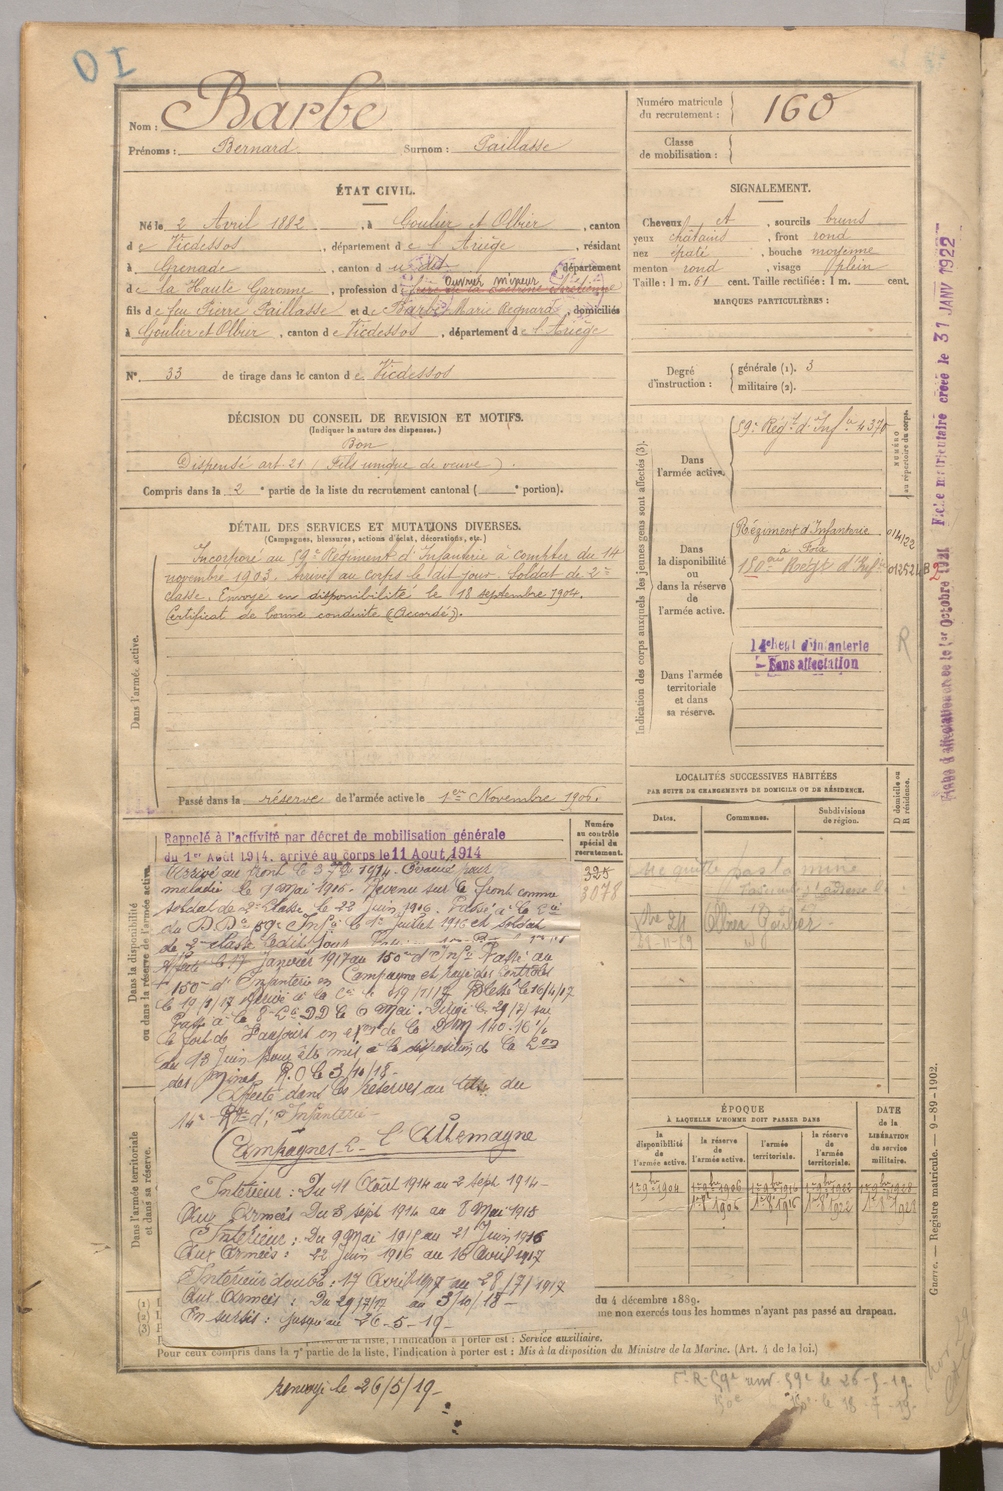 Nom : Barbe
Prénoms : Bernard Surnom : Paillasse
Numéro matricule du recrutement : 160
Classe de mobilisation :
ÉTAT CIVIL.
Né le 2 Avril 1882, à Goulier et Olbier, canton
de Vicdessos, département de l'Ariège, résidant
à Grenade, canton d u dit, département
de la Haute Garonne, profession d ouvrier mineur
fils de feu Pierre Paillasse et de Barbe Marie Reynard, domiciliés
à Goulier et Olbier, canton de Vicdessos, département de l'Ariège
N° 33 de tirage dans le canton de Vicdessos
SIGNALEMENT.
Cheveux et, sourcils bruns
yeux châtains, front rond
nez épaté, bouche moyenne
menton rond, visage plein
Taille : 1 m. 61 cent. Taille rectifiée : 1 m. cent.
MARQUES PARTICULIÈRES :
Degré d'instruction : générale (1). 3
militaire (2).
DÉCISION DU CONSEIL DE REVISION ET MOTIFS.
(Indiquer la nature des dispenses.)
Bon
Dispensé art. 21 (Fils unique de veuve).
Compris dans la 2e partie de la liste du recrutement cantonal ( e portion).
DÉTAIL DES SERVICES ET MUTATIONS DIVERSES.
(Campagnes, blessures, actions d'éclat, décorations, etc.)
Dans l'armée active.
Incorporé au 59e Régiment d'Infanterie à compter du 14
novembre 1903. Arrivé au corps le dit jour. Soldat de 2e
classe. Envoyé en disponibilité le 18 septembre 1904.
Certificat de bonne conduite (Accordé).
Passé dans la réserve de l'armée active le 1er Novembre 1906.
Indication des corps auxquels les jeunes gens sont affectés (3).
NUMÉRO au répertoire du corps.
Dans l'armée active.
59e Régt d'Infie 4370
Dans la disponibilité ou dans la réserve de l'armée active.
Régiment d'Infanterie
a Foix
Dans l'armée territoriale et dans sa réserve.
14e Régt d'infanterie
Sans affectation
R
LOCALITÉS SUCCESSIVES HABITÉES
PAR SUITE DE CHANGEMENTS DE DOMICILE OU DE RÉSIDENCE.
Dates. Communes. Subdivisions de région. D domicile ou R résidence.
ne quitte pas la mine
Dans la disponibilité ou dans la réserve de l'armée active.
Numéro au contrôle spécial du recrutement.
325
3078
Rappelé à l'activité par décret de mobilisation générale
du 1er Août 1914, arrivé au corps le 11 Aout 1914
Arrivé au front le 3 7bre 1914. Evacué pour
maladie le 9 Mai 1916. Revenu sur le front comme
soldat de 2e classe le 22 Juin 1916. Passé à la Cie
du D.D. 59e Infie le 1er Juillet 1916 et soldat
de 2e classe le dit jour
Affecté le 17 Janvier 1917 au 150e d'Infie Passé au
150e d'Infanterie en Campagne et rayé des contrôles
le 19/1/17 Arrivé à la Cie le 19/1/17 Blessé le 16/4/17
Passé à le Cie DD le 6 Mai. Dirigé le 29/7/ sur
du 13 Juin pour être mis à la disposition de la
des Mines R.O le 3/10/18 -
Affecté dans les Réserves au titre du
14e Rgt d'Infanterie -
Campagnes C. l'Allemagne
Intérieur : Du 11 Août 1914 au 2 Sept 1914 -
Aux Armées Du 3 Sept 1914 au 8 Mai 1916
Intérieur : Du 9 Mai 1916 au 21 Juin 1916
Aux Armées : 22 Juin 1916 au 16 Avril 1917
Intérieur doubé : 17 Avril 1917 au 28/7/1917
Aux Armées : Du 29/7/17 au 3/10/18 -
En sursis : jusqu'au 26-5-19 -
Dans l'armée territoriale et dans sa réserve.
ÉPOQUE
À LAQUELLE L'HOMME DOIT PASSER DANS
la disponibilité de l'armée active. la réserve de l'armée active. l'armée territoriale. la réserve de l'armée territoriale.
DATE de la LIBÉRATION du service militaire.
1er 9bre 1904 1er 9bre 1906 1er 9bre 1916 1er 9bre 1922 1er 9bre 1928
1er 8e 1906 1er 8e 1916 1er 8e 1922 1er 8e 1928
du 4 décembre 1889.
me non exercés tous les hommes n'ayant pas passé au drapeau.
de la liste, l'indication à porter est : Service auxiliaire.
Pour ceux compris dans la 7e partie de la liste, l'indication à porter est : Mis à la disposition du Ministre de la Marine. (Art. 4 de la loi.)
renvoyé le 26/5/19 -
Guerre. — Registre matricule. — 9-89-1902.